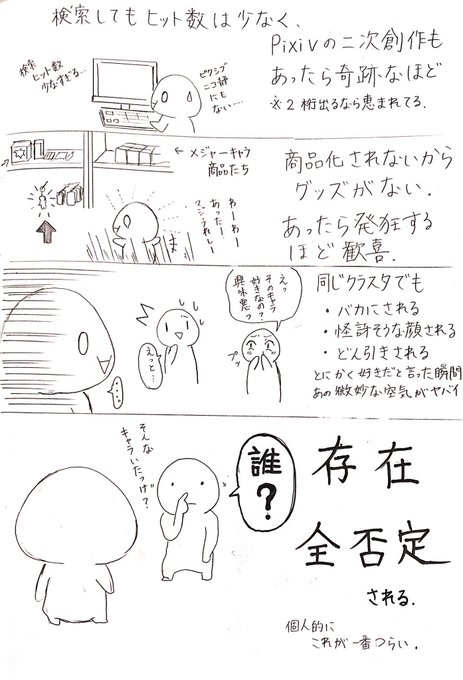 検索してもヒット数は少なく、
Pixivの二次創作も
あったら奇跡なほど
※2桁出るなら恵まれてる.
検索
ヒット数
少なすぎる…
ピクシブ
ニコ静
にも
ない…
商品化されないから
グッズがない.
あったら発狂する
ほど歓喜.
←メジャーキャラ
商品たち
わーわー
あったー
マジうれしー
同じクラスタでも
・バカにされる
・怪訝そうな顔される
・どん引きされる
とにかく好きだと言った瞬間
あの微妙な空気がヤバイ
えっ
そのキャラ
好きなの?
趣味悪っ
プッ
えっと…
…
存在
全否定
される.
個人的に
これが一番つらい.
誰?
そんな
キャラいたっけ?